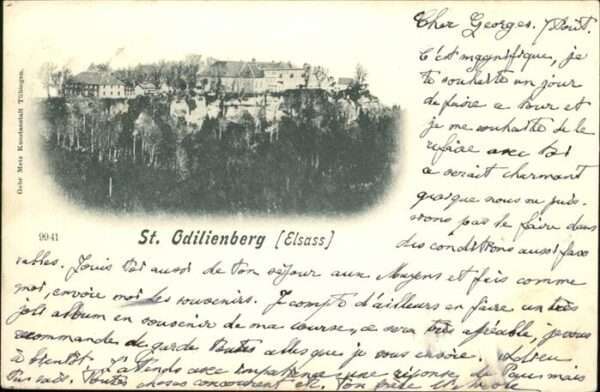 Cher Georges. 7 Août.
C'est magnifique, je
te souhaite un jour
de faire ce tour et
je me souhaite de le
refaire avec toi
ce serait charmant
quoique nous ne puis-
sions pas le faire dans
des conditions aussi favo
rables. Jouis toi aussi de ton séjour aux et fais comme
moi, envoie moi des souvenirs. Je compte d'ailleurs en faire un très
joli album en souvenir de ma course, ce sera très agréable je vous
recommande de garder toutes celles que je vous envoie.
à bientôt j'attends avec impatience une réponse de mais
Toutes choses concernant et
Gebr Metz Kunstanstalt Tübingen.
9941
St. Odilienberg [Elsass]